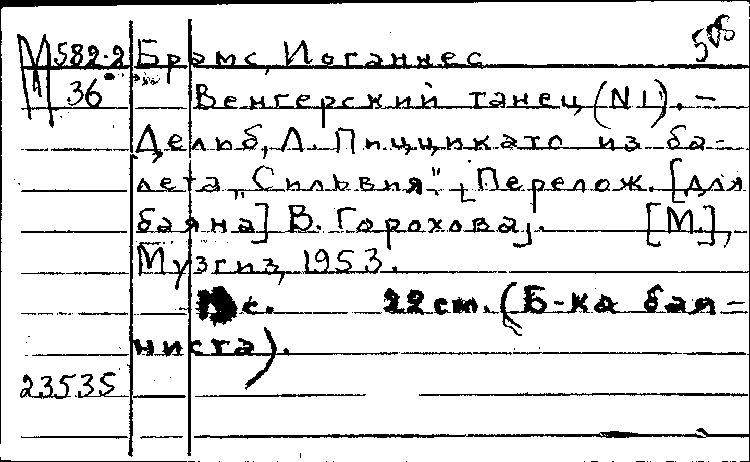 М582.2 Брамс, Иоганнес
36 Венгерский танец (N1). –
Делиб, Л. Пиццикато из ба-
лета „Сильвия". Перелож. [для
баяна] В. Горохова. [М.],
Музгиз, 1953.
с. 22 см. (Б-ка бая-
ниста).
23535